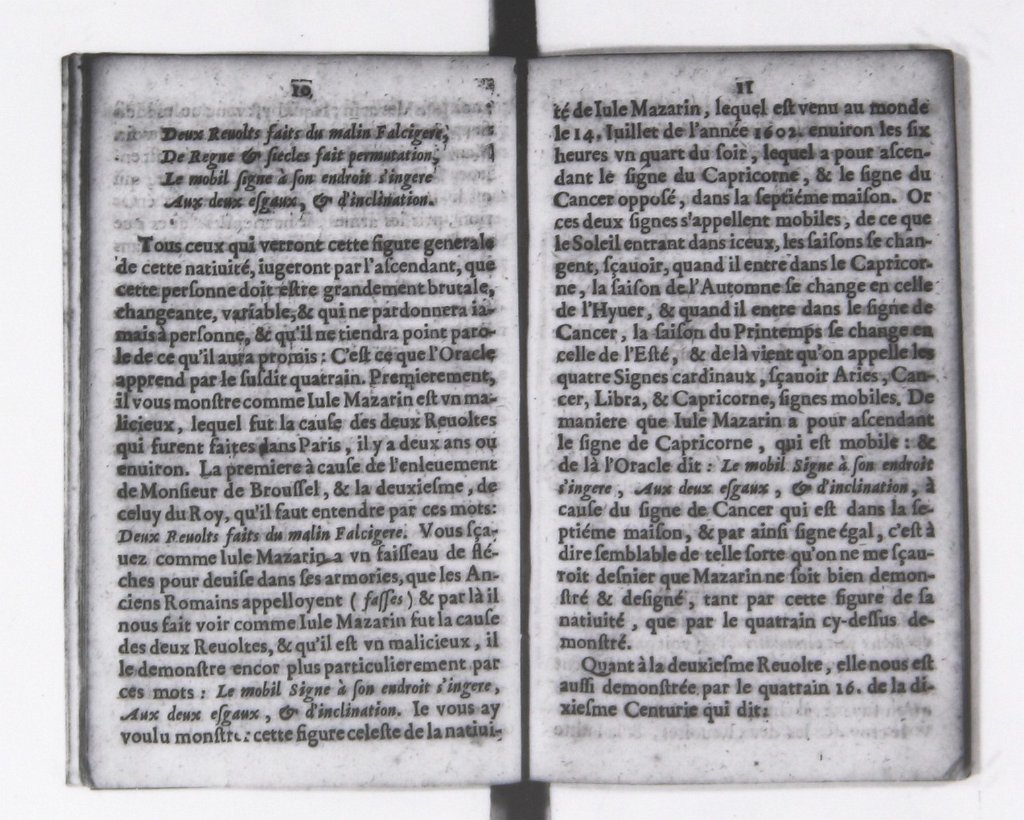 10
Deux Reuolts faits du malin Falcigere,
De Regne & siecles fait permutation,
Le mobil signe à son endroit s'ingere
Aux deux esgaux, & d'inclination.
Tous ceux qui verront cette figure generale
de cette natiuité, iugeront par l'ascendant, que
cette personne doit estre grandement brutale,
changeante, variable, & qui ne pardonnera ia-
mais à personne, & qu'il ne tiendra point paro-
le de ce qu'il aura promis : C'est ce que l'Oracle
apprend par le susdit quatrain. Premierement,
il vous monstre comme Iule Mazarin est vn ma-
licieux, lequel fut la cause des deux Reuoltes
qui furent faites dans Paris, il y a deux ans ou
enuiron. La premiere à cause de l'enleuement
de Monsieur de Broussel, & la deuxiesme, de
celuy du Roy, qu'il faut entendre par ces mots:
Deux Reuolts faits du malin Falcigere. Vous sça-
uez comme Iule Mazarin a vn faisseau de flé-
ches pour deuise dans ses armories, que les An-
ciens Romains appelloyent ( fasses ) & par là il
nous fait voir comme Iule Mazarin fut la cause
des deux Reuoltes, & qu'il est vn malicieux, il
le demonstre encor plus particulierement par
ces mots : Le mobil Signe à son endroit s'ingere,
Aux deux esgaux, & d'inclination. Ie vous ay
voulu monstrer cette figure celeste de la natiui-
11
té de Iule Mazarin, lequel est venu au monde
le 14. Iuillet de l'année 1602. enuiron les six
heures vn quart du soir, lequel a pour ascen-
dant le signe du Capricorne, & le signe du
Cancer opposé, dans la septiéme maison. Or
ces deux signes s'appellent mobiles, de ce que
le Soleil entrant dans iceux, les saisons se chan-
gent, sçauoir, quand il entre dans le Capricor-
ne, la saison de l'Automne se change en celle
de l'Hyuer, & quand il entre dans le signe de
Cancer, la saison du Printemps se change en
celle de l'Esté, & de là vient qu'on appelle les
quatre Signes cardinaux, sçauoir Aries, Can-
cer, Libra, & Capricorne, signes mobiles. De
maniere que Iule Mazarin a pour ascendant
le signe de Capricorne, qui est mobile : &
de là l'Oracle dit : Le mobil Signe à son endroit
s'ingere, Aux deux esgaux, & d'inclination, à
cause du signe de Cancer qui est dans la se-
ptiéme maison, & par ainsi signe égal, c'est à
dire semblable de telle sorte qu'on ne me sçau-
roit desnier que Mazarin ne soit bien demon-
stré & designé, tant par cette figure de sa
natiuité, que par le quatrain cy-dessus de-
monstré.
Quant à la deuxiesme Reuolte, elle nous est
aussi demonstrée par le quatrain 16. de la di-
xiesme Centurie qui dit: